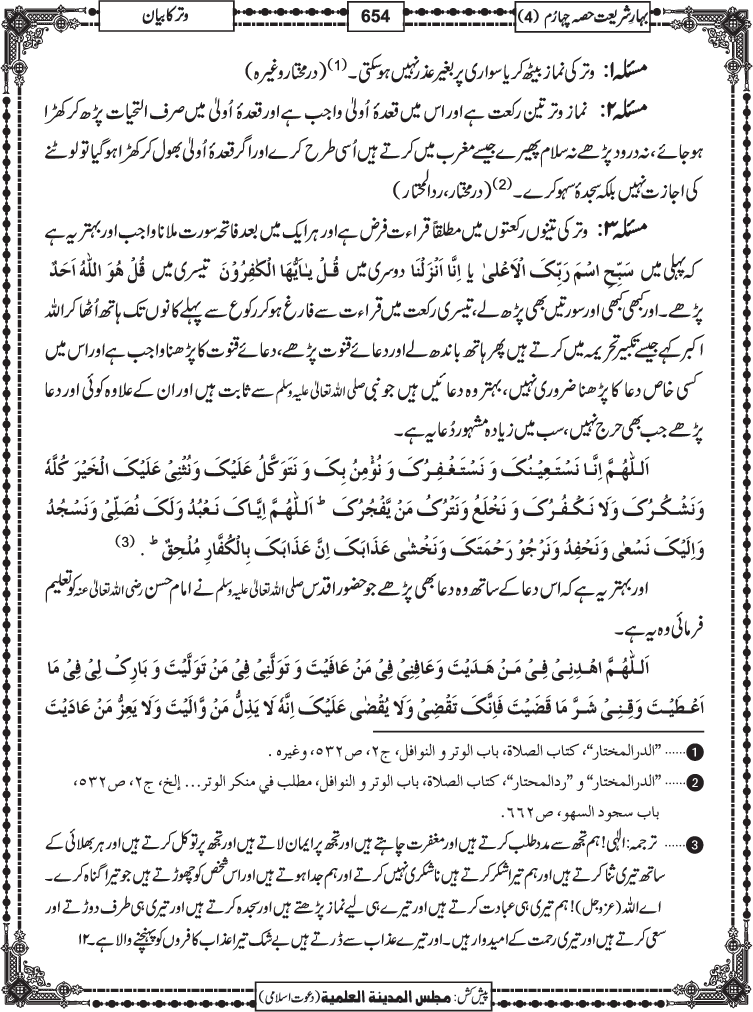 بہارِشریعت حصہ چہارم (4)
654
وتر کا بیان
مسئلہ ۱: وتر کی نماز بیٹھ کر یا سواری پر بغیر عذر نہیں ہوسکتی۔(1) (درمختار وغیرہ)
مسئلہ ۲: نماز وتر تین رکعت ہے اور اس میں قعدۂ اُولیٰ واجب ہے اور قعدۂ اُولیٰ میں صرف التحیات پڑھ کر کھڑا
ہوجائے، نہ درود پڑھے نہ سلام پھیرے جیسے مغرب میں کرتے ہیں اُسی طرح کرے اور اگر قعدۂ اُولیٰ بھول کر کھڑا ہوگیا تو لوٹنے
کی اجازت نہیں بلکہ سجدۂ سہو کرے۔(2) (درمختار، ردالمحتار)
مسئلہ ۳: وتر کی تینوں رکعتوں میں مطلقاً قراءت فرض ہے اور ہر ایک میں بعد فاتحہ سورت ملانا واجب اور بہتر یہ ہے
کہ پہلی میں سَبِّحِ اسْمَ رَبِّکَ الْاَعْلٰی یا اِنَّا اَنْزَلْنَا دوسری میں قُلْ یٰۤاَیُّهَا الْکٰفِرُوْنَ تیسری میں قُلْ هُوَ اللّٰهُ اَحَدٌ
پڑھے۔ اور کبھی کبھی اور سورتیں بھی پڑھ لے، تیسری رکعت میں قراءت سے فارغ ہوکر رکوع سے پہلے کانوں تک ہاتھ اُٹھا کر اللہ
اکبر کہے جیسے تکبیر تحریمہ میں کرتے ہیں پھر ہاتھ باندھ لے اور دعائے قنوت پڑھے، دعائے قنوت کا پڑھنا واجب ہے اور اس میں
کسی خاص دعا کا پڑھنا ضروری نہیں، بہتر وہ دعائیں ہیں جو نبی صلی اللہ تعالیٰ علیہ وسلم سے ثابت ہیں اور ان کے علاوہ کوئی اور دعا
پڑھے جب بھی حرج نہیں، سب میں زیادہ مشہور دُعا یہ ہے۔
اَللّٰهُمَّ اِنَّا نَسْتَعِیْنُکَ وَ نَسْتَغْفِرُکَ وَ نُؤْمِنُ بِکَ وَ نَتَوَکَّلُ عَلَیْکَ وَنُثْنِیْ عَلَیْکَ الْخَیْرَ کُلَّهٗ
وَنَشْکُرُکَ وَلَا نَکْفُرُکَ وَ نَخْلَعُ وَنَتْرُکُ مَنْ یَّفْجُرُکَ ط اَللّٰهُمَّ اِیَّاکَ نَعْبُدُ وَلَکَ نُصَلِّیْ وَنَسْجُدُ
وَاِلَیْکَ نَسْعٰی وَنَحْفِدُ وَنَرْجُوْ رَحْمَتَکَ وَنَخْشٰی عَذَابَکَ اِنَّ عَذَابَکَ بِالْکُفَّارِ مُلْحِقٌ ط . (3)
اور بہتر یہ ہے کہ اس دعا کے ساتھ وہ دعا بھی پڑھے جو حضور اقدس صلی اللہ تعالیٰ علیہ وسلم نے امام حسن رضی اللہ تعالیٰ عنہ کو تعلیم
فرمائی وہ یہ ہے۔
اَللّٰهُمَّ اهْدِنِیْ فِیْ مَنْ هَدَیْتَ وَعَافِنِیْ فِیْ مَنْ عَافَیْتَ وَ تَوَلَّنِیْ فِیْ مَنْ تَوَلَّیْتَ وَ بَارِکْ لِیْ فِیْ مَا
اَعْطَیْتَ وَقِنِیْ شَرَّ مَا قَضَیْتَ فَاِنَّکَ تَقْضِیْ وَلَا یُقْضٰی عَلَیْکَ اِنَّهٗ لَا یَذِلُّ مَنْ وَّالَیْتَ وَلَا یَعِزُّ مَنْ عَادَیْتَ
1 ...... "الدرالمختار"، كتاب الصلاة، باب الوتر و النوافل، ج۲، ص۵۳۲، وغيره .
2 ...... "الدرالمختار" و "ردالمحتار"، كتاب الصلاة، باب الوتر و النوافل، مطلب في منكر الوتر... إلخ، ج۲، ص۵۳۲،
باب سجود السهو، ص۶۶۲.
3 ...... ترجمہ: الٰہی! ہم تجھ سے مدد طلب کرتے ہیں اور مغفرت چاہتے ہیں اور تجھ پر ایمان لاتے ہیں اور تجھ پر توکل کرتے ہیں اور ہر بھلائی کے
ساتھ تیری ثنا کرتے ہیں اور ہم تیرا شکر کرتے ہیں ناشکری نہیں کرتے اور ہم جدا ہوتے ہیں اور اس شخص کو چھوڑتے ہیں جو تیرا گناہ کرے۔
اے اللہ (عزوجل)! ہم تیری ہی عبادت کرتے ہیں اور تیرے ہی لیے نماز پڑھتے ہیں اور سجدہ کرتے ہیں اور تیری ہی طرف دوڑتے اور
سعی کرتے ہیں اور تیری رحمت کے امیدوار ہیں۔ اور تیرے عذاب سے ڈرتے ہیں بے شک تیرا عذاب کافروں کو پہنچنے والا ہے۔۱۲
پیش کش: مجلس المدینۃ العلمیۃ (دعوت اسلامی)